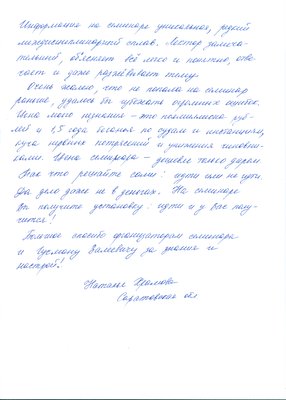 Информация на семинаре уникальная, редкий
междисциплинарный сплав. Лектор замеча-
тельный, объясняет всё легко и понятно, отве-
чает и даже разжёвывает тему.
Очень жалею, что не попала на семинар
раньше, удалось бы избежать огромных ошибок.
Цена моего незнания – это полмиллиона руб-
лей и 1,5 года беганья по судам и инстанциям,
куча нервных потрясений и унижения чиновни-
ками. Цена семинара – дешевле только даром
Так что решайте сами: идти или не идти.
Да дело даже не в деньгах. На семинаре
Вы получите установку: идти и у Вас полу-
чится!
Большое спасибо организаторам семинара
и Гусману Вилевичу за знания и
настрой!
Наталья
Саратовская обл